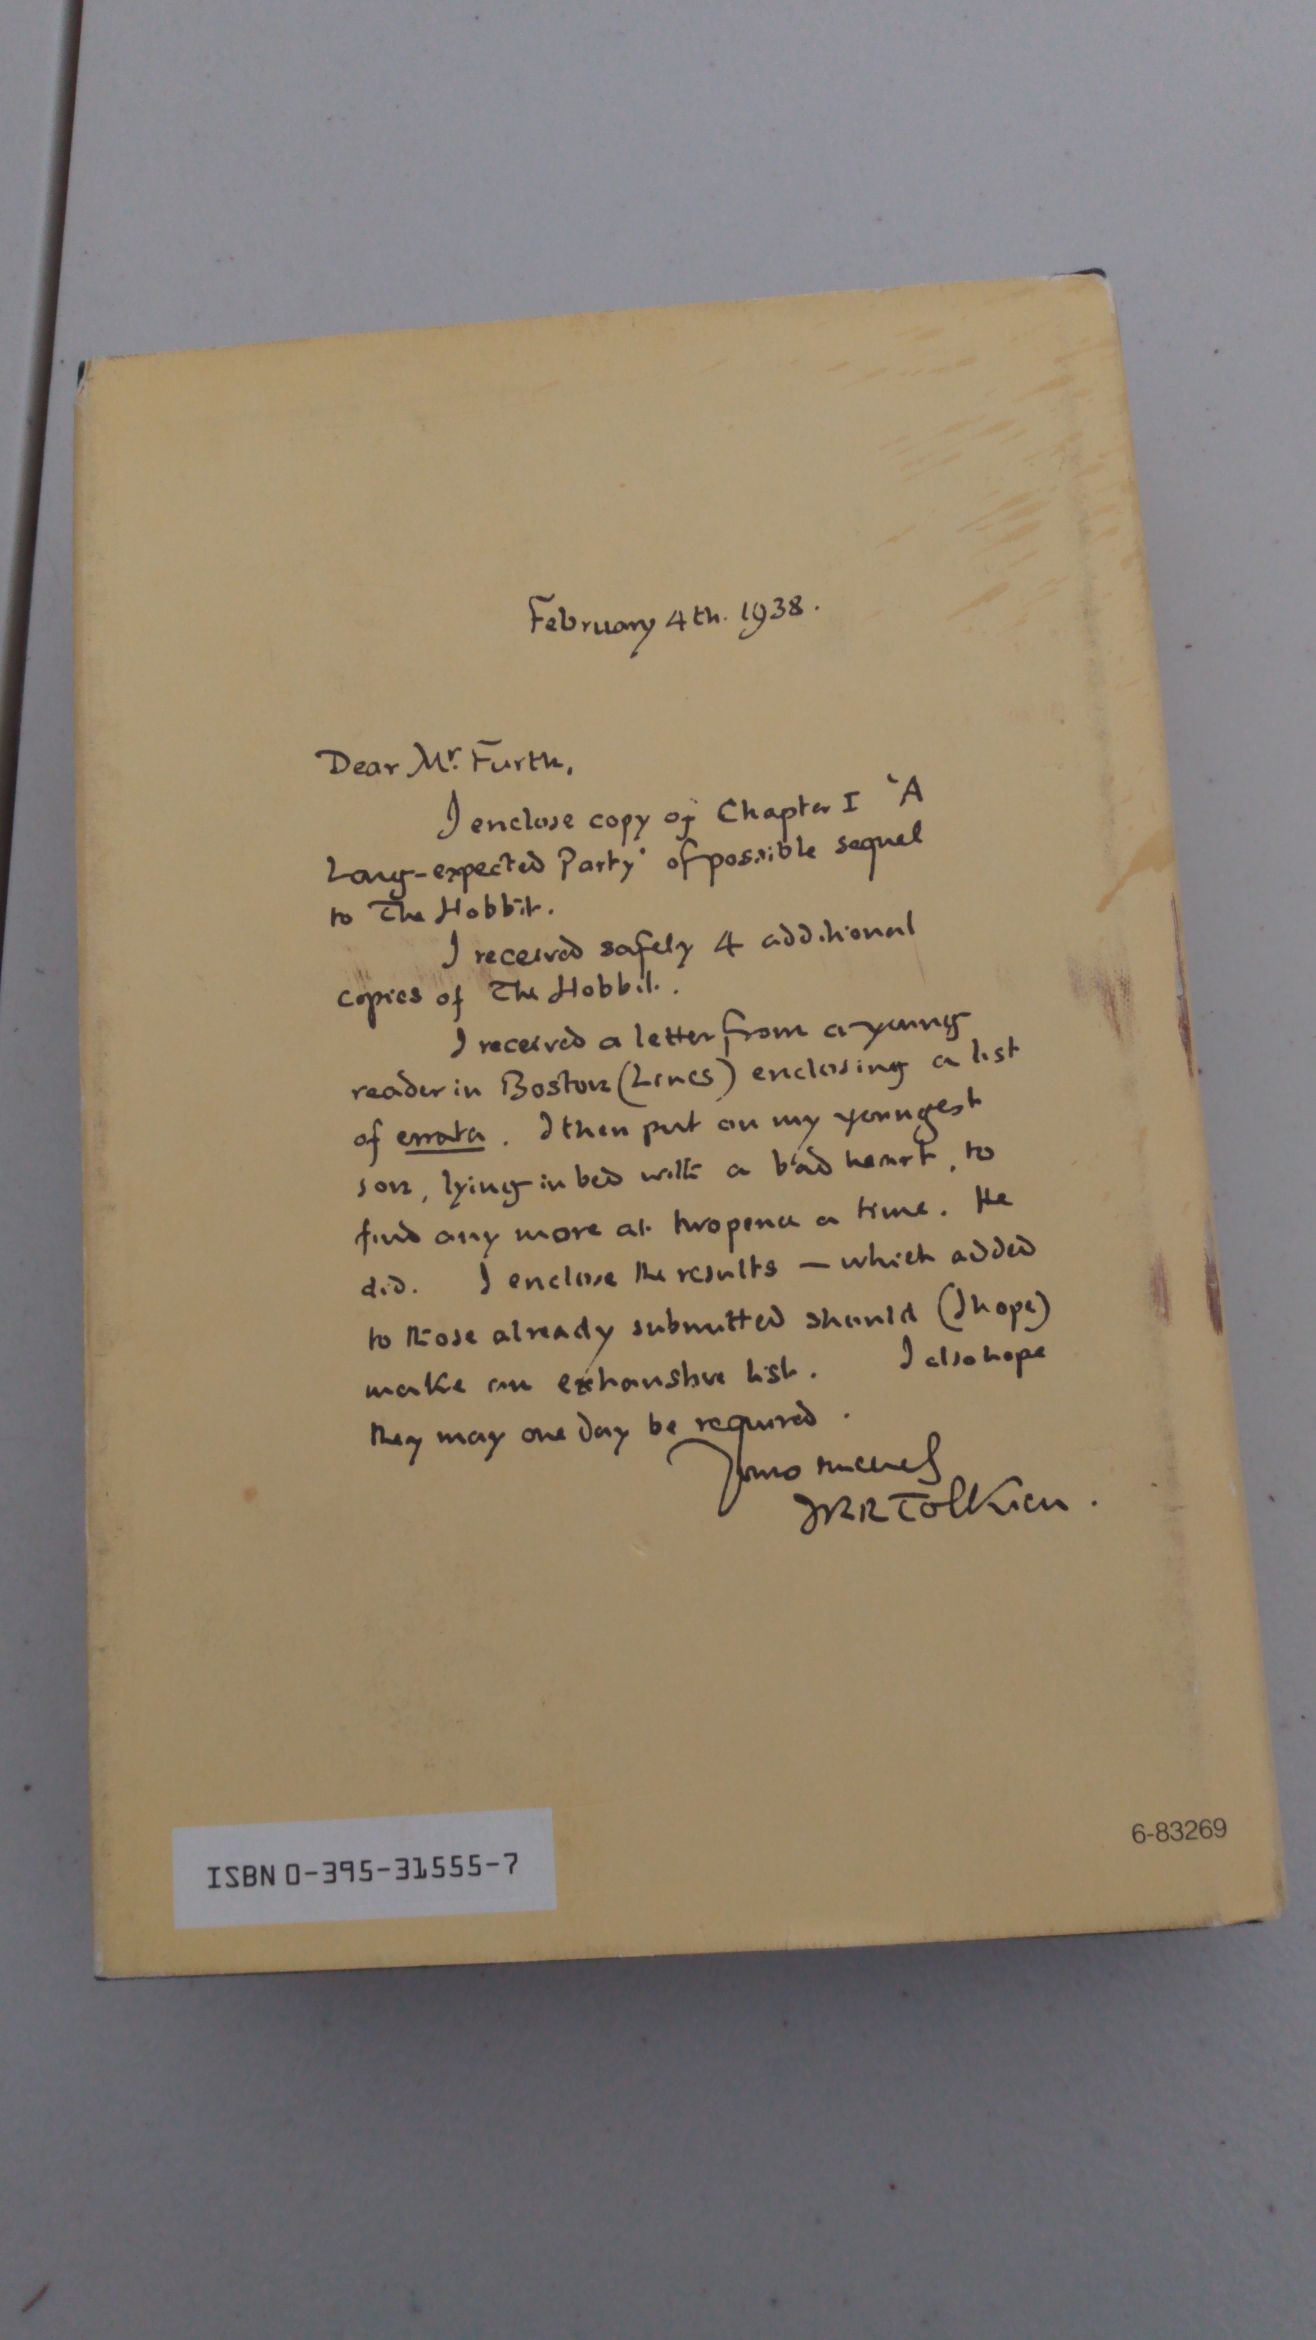 February 4th. 1938.
Dear Mr. Furth,
I enclose copy of Chapter I 'A
Long-expected Party' of possible sequel
to The Hobbit.
I received safely 4 additional
copies of The Hobbit.
I received a letter from a young
reader in Boston (Lincs) enclosing a list
of errata. I then put on my youngest
son, lying in bed with a bad heart, to
find any more at twopence a time. He
did. I enclose the results — which added
to those already submitted should (I hope)
make an exhaustive list. I also hope
they may one day be required.
Yours sincerely
JRRTolkien.
6-83269
ISBN 0-395-31555-7